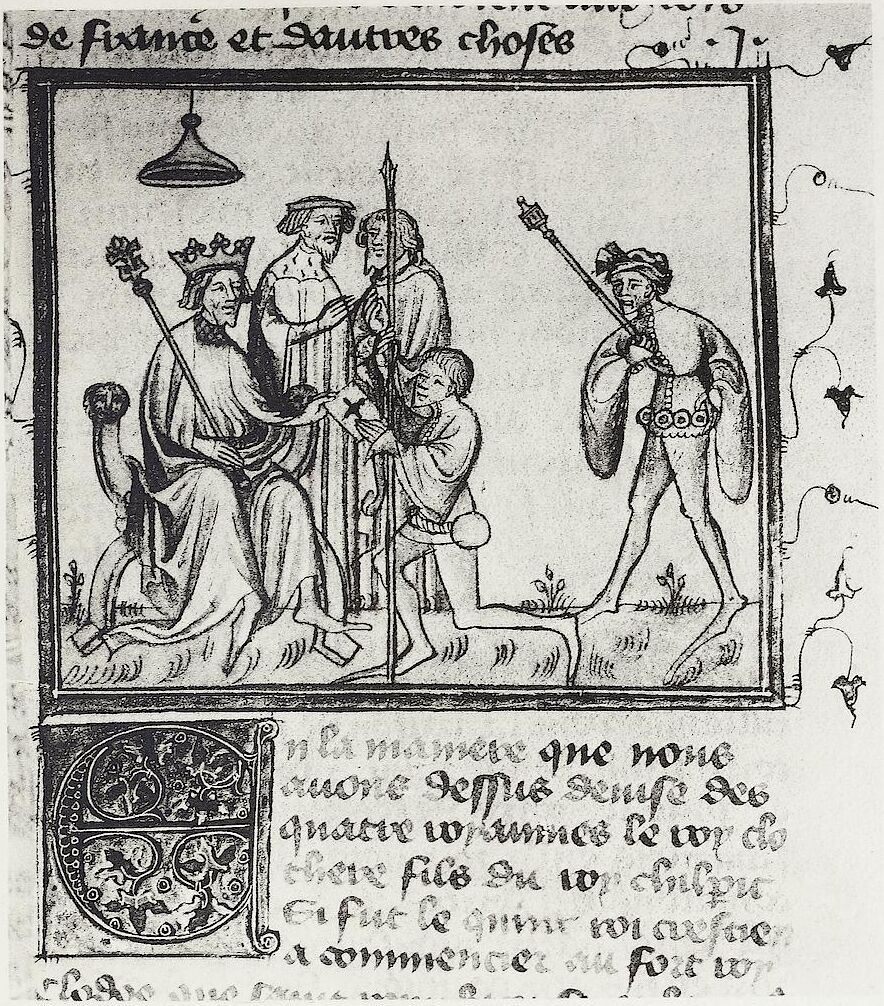 de france et dautres choses
En la maniere que nous
auons dessus deuise des
quatre royaumes le roy clo
there fils du roy chilperic
Si fut le quint roi crestien
a commencier au fort roy